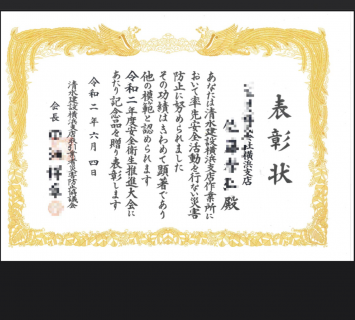 表彰状
横浜支店
殿
あなたは清水建設横浜支店作業所に
おいて率先安全活動を行ない災害
防止に努められました
その功績はきわめて顕著であり
他の模範と認められます
令和二年度安全衛生推進大会に
あたり記念品を贈り表彰します
令和二年六月四日
清水建設横浜支店
災害防止協議会
会長